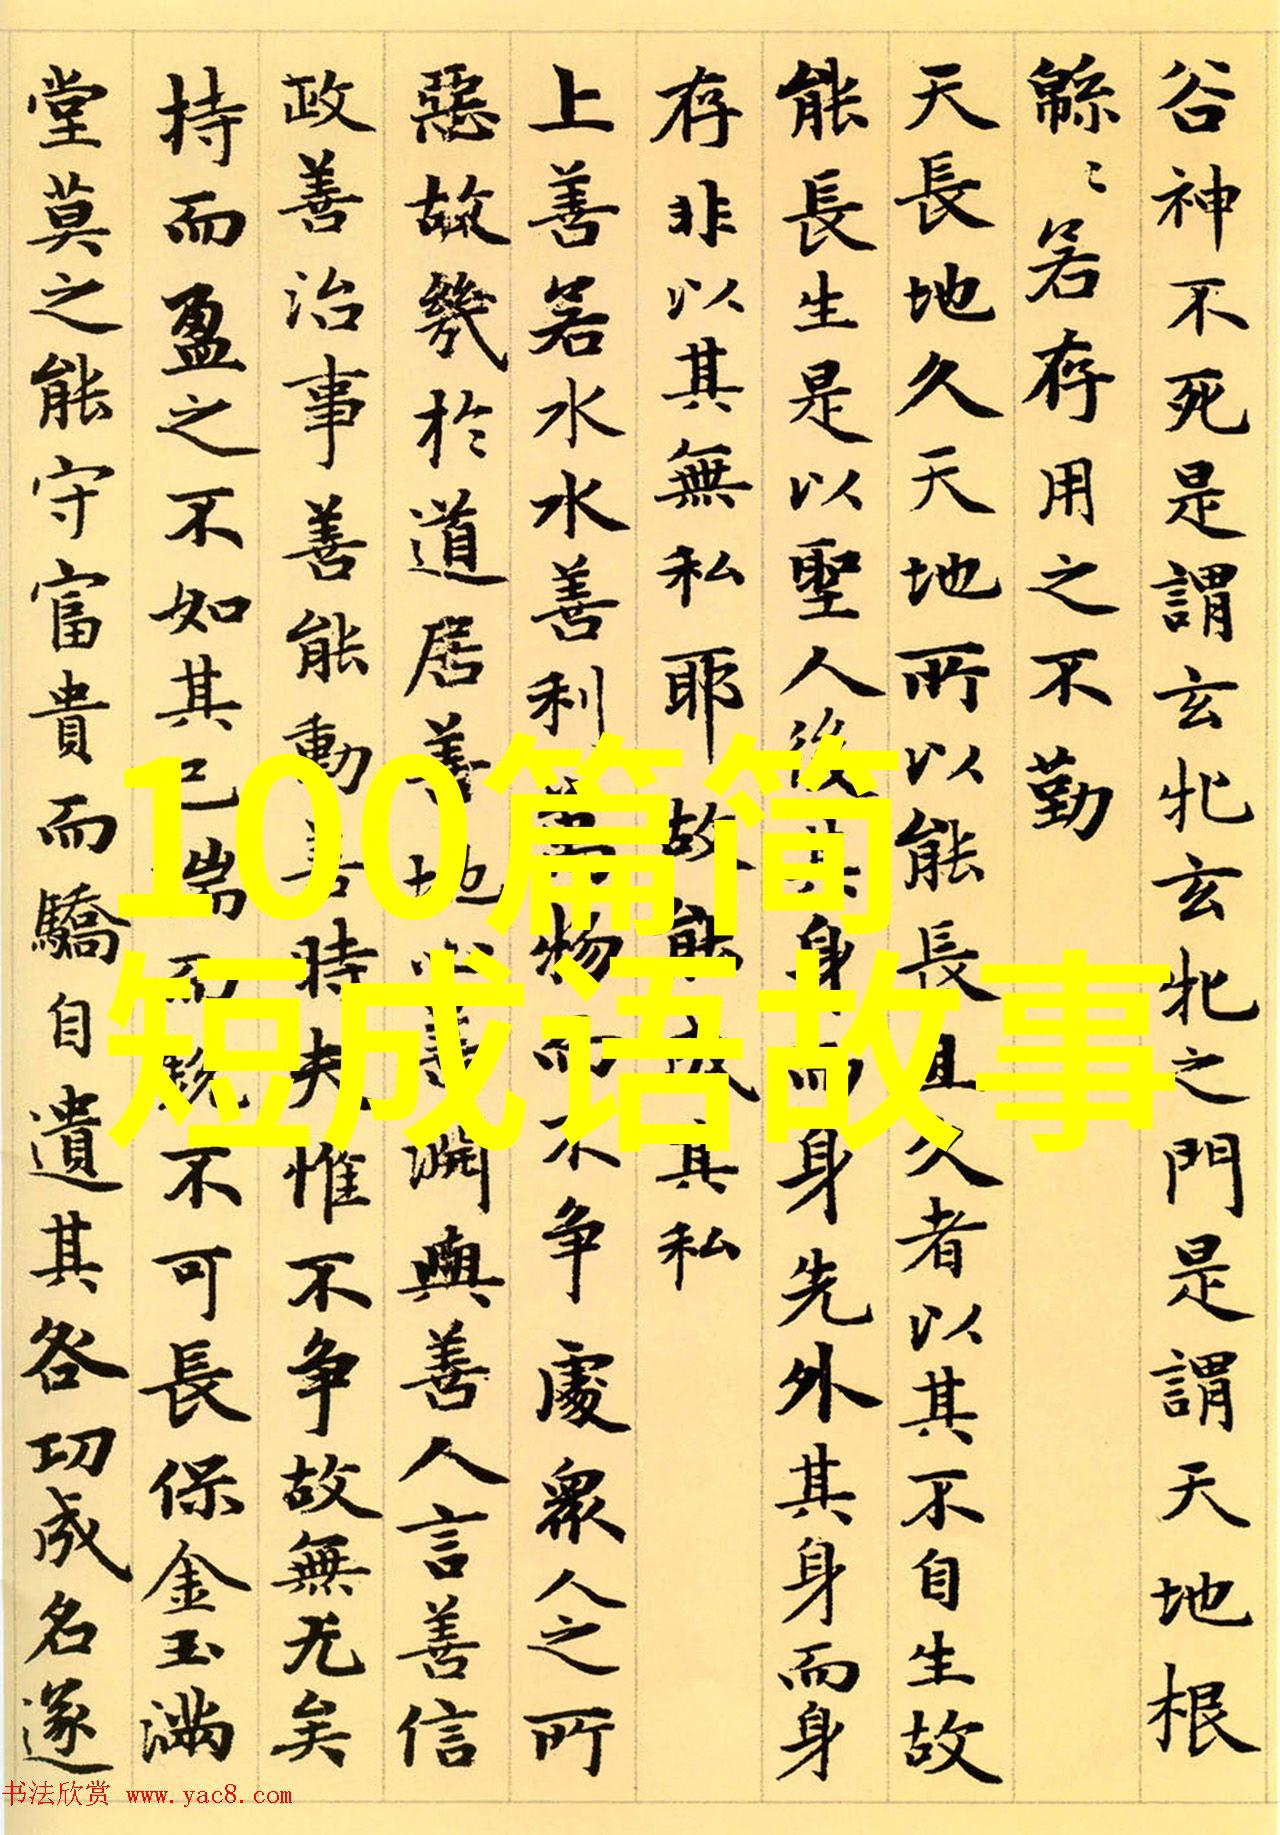 谷神不死是謂玄牝玄牝之門是謂天地根
緜〻若存用之不勤
天長地久天地所以能長且久者以其不自生故
能長生是以聖人後其身而身先外其身而身
存非以其無私耶故能成其私
上善若水水善利萬物而不争處衆人之所
惡故幾於道居善地心善淵與善人言善信
政善治事善能動善時夫惟不争故無尤矣
持而盈之不如其已揣而不可長保金玉滿
堂莫之能守富貴而驕自遺其咎功成名遂
100篇简
短成语故事
书法欣赏 www.yac8.com